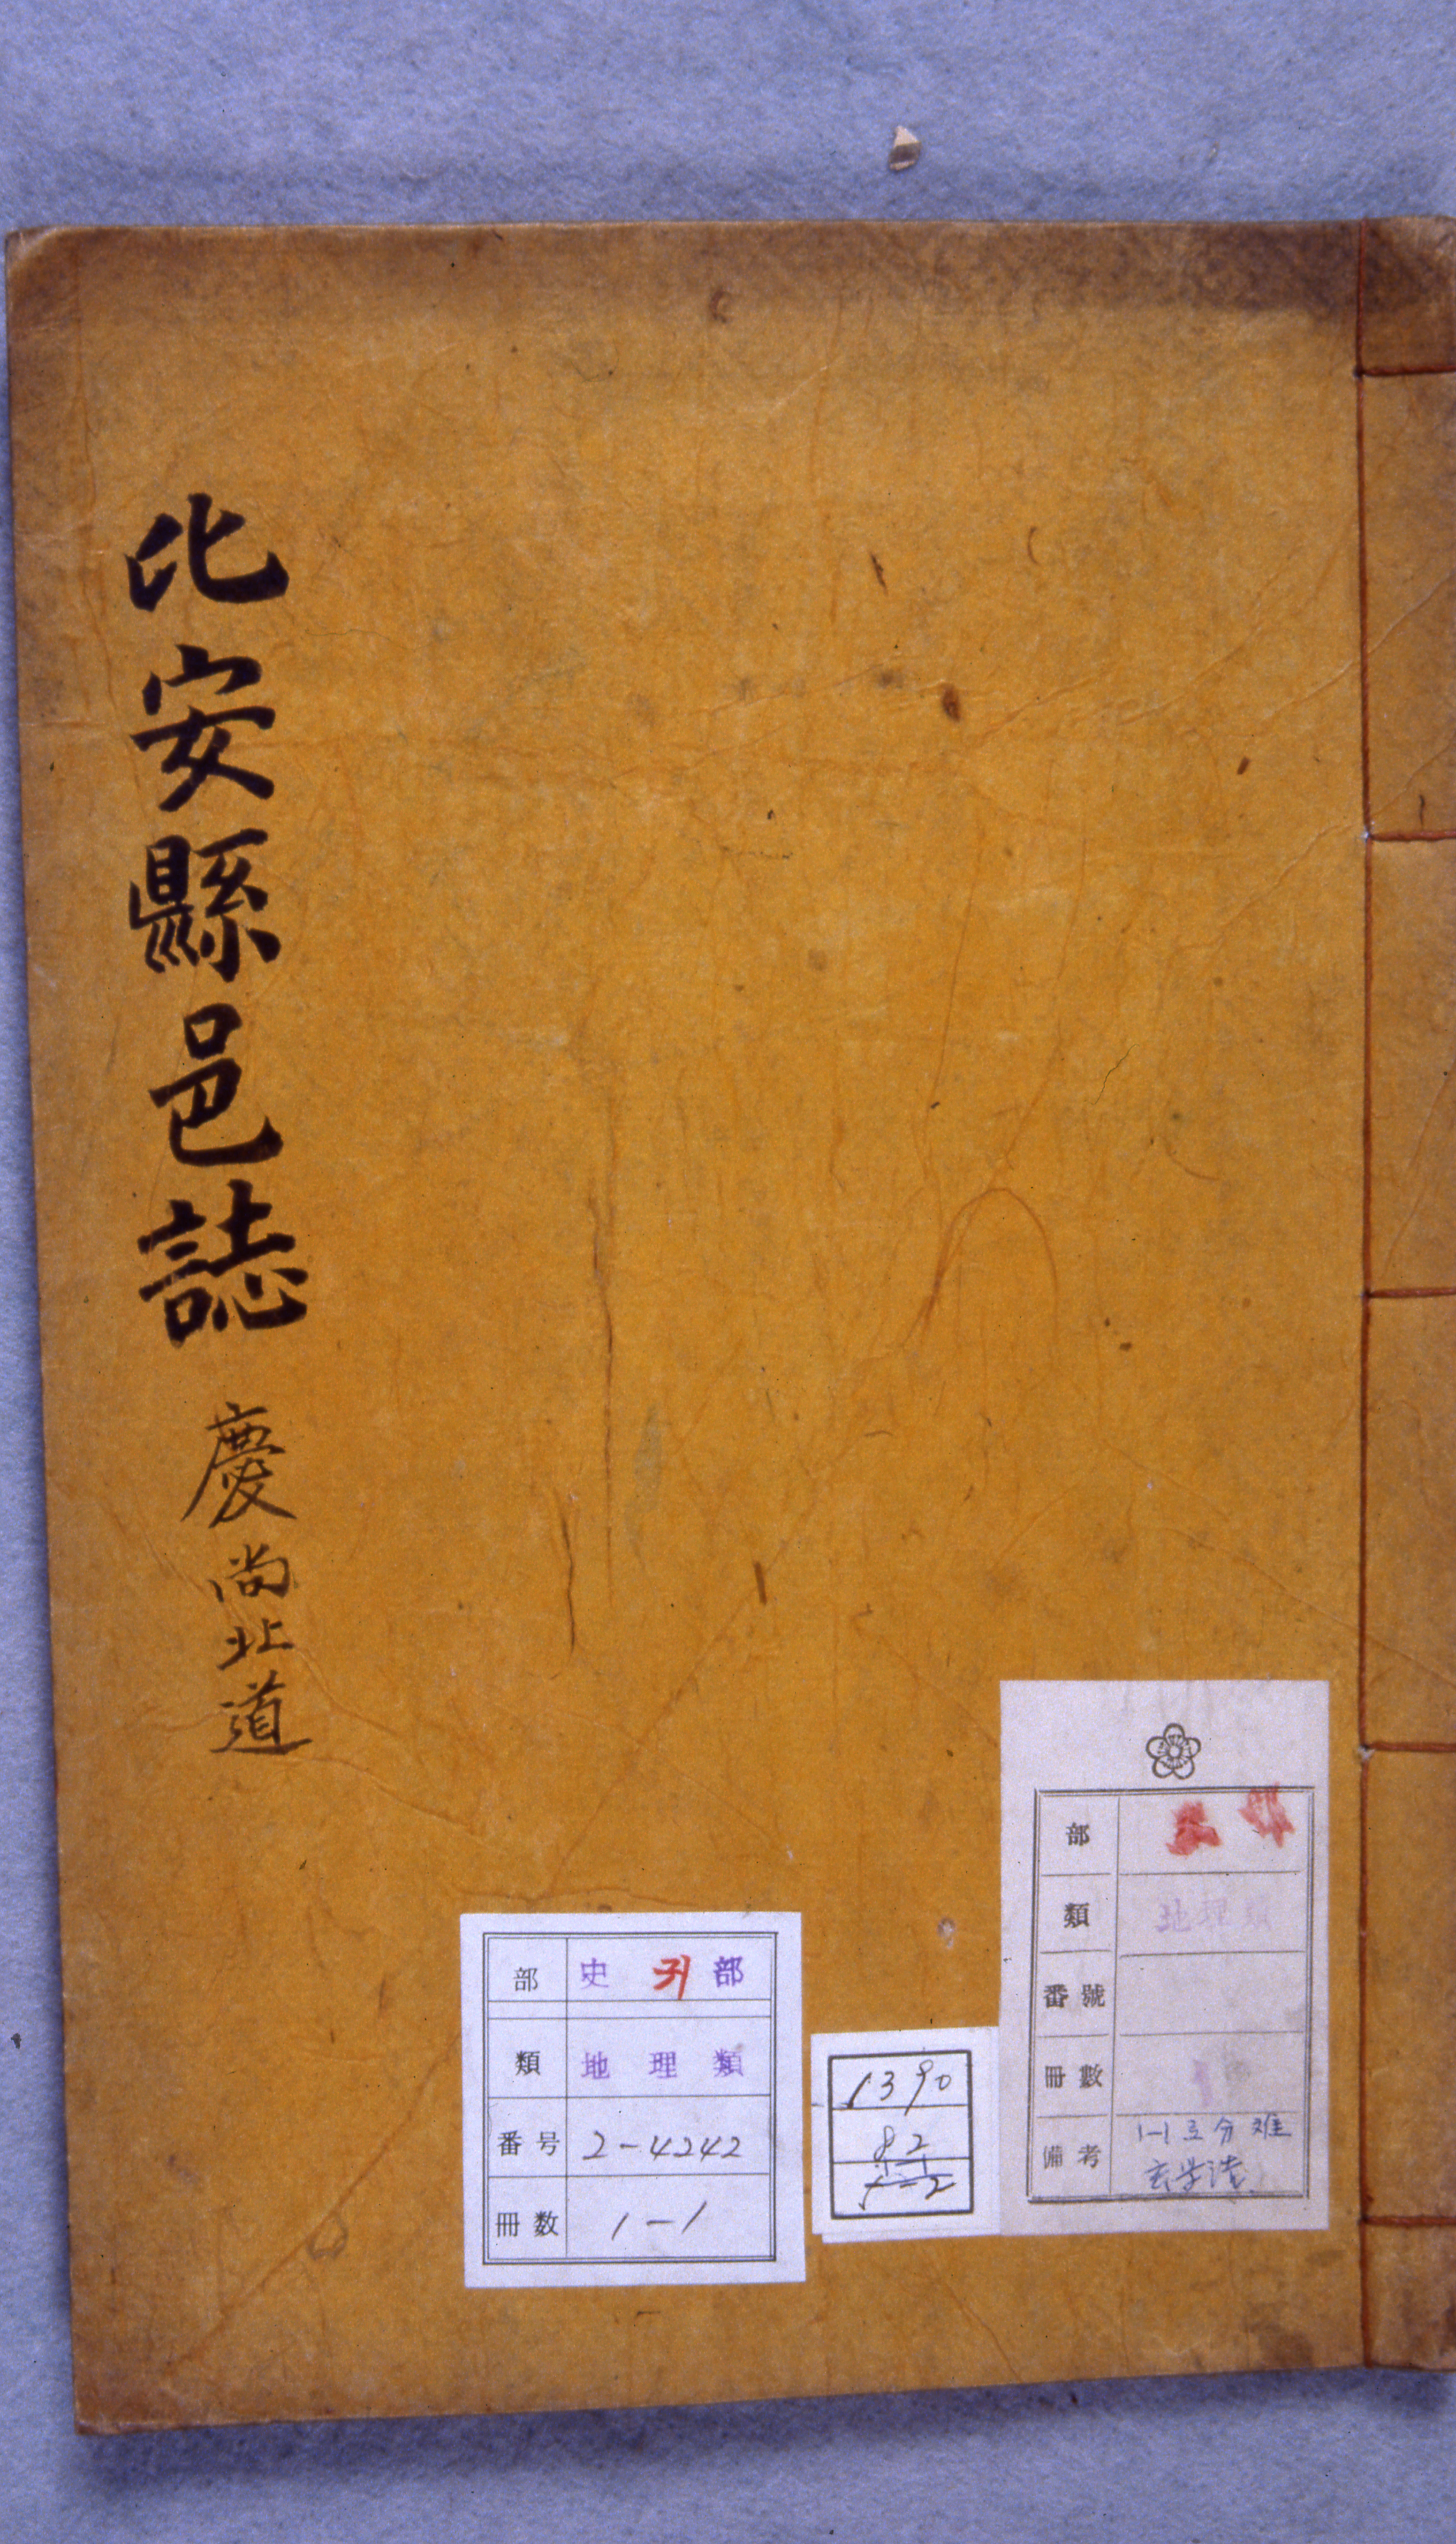 比安縣邑誌
慶尙北道
部 史 귀 部
類 地理類
番号 2-4242
冊数 1-1
1390
82
5-2
部
類 地理類
番號
冊數 1
備考 1-1